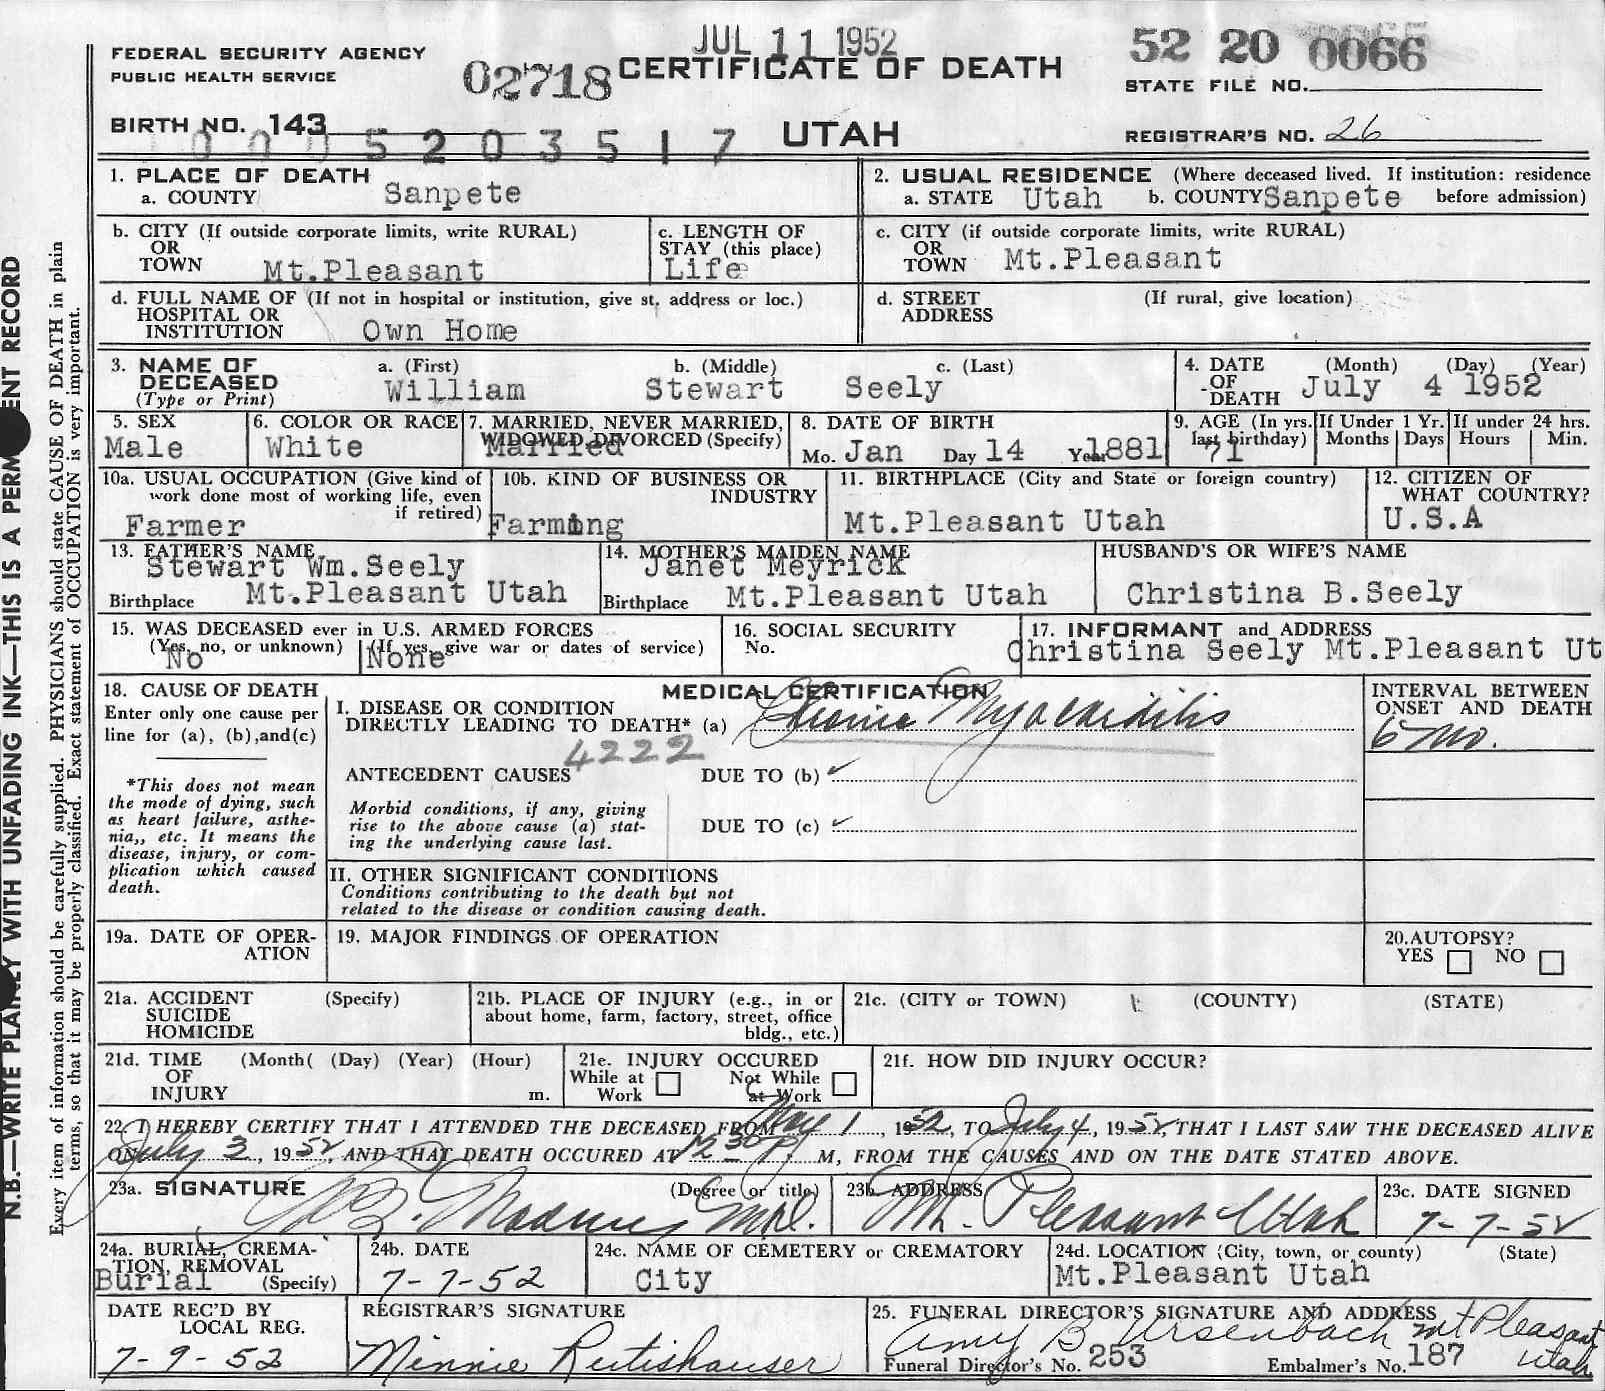 JUL 11 1952
FEDERAL SECURITY AGENCY
PUBLIC HEALTH SERVICE
02718
CERTIFICATE OF DEATH
52 20 0066
STATE FILE NO.
BIRTH NO. 143
0 0 0 5 2 0 3 5 1 7
UTAH
REGISTRAR'S NO. 26
1. PLACE OF DEATH
a. COUNTY Sanpete
2. USUAL RESIDENCE (Where deceased lived. If institution: residence
a. STATE Utah b. COUNTY Sanpete before admission)
b. CITY (If outside corporate limits, write RURAL)
OR
TOWN Mt.Pleasant
c. LENGTH OF
STAY (this place)
Life
c. CITY (if outside corporate limits, write RURAL)
OR
TOWN Mt.Pleasant
d. FULL NAME OF (If not in hospital or institution, give st. address or loc.)
HOSPITAL OR
INSTITUTION Own Home
d. STREET (If rural, give location)
ADDRESS
3. NAME OF DECEASED
(Type or Print)
a. (First) b. (Middle) c. (Last)
William Stewart Seely
4. DATE OF DEATH
(Month) (Day) (Year)
July 4 1952
5. SEX
Male
6. COLOR OR RACE
White
7. MARRIED, NEVER MARRIED,
WIDOWED, DIVORCED (Specify)
Married
8. DATE OF BIRTH
Mo. Jan Day 14 Year 1881
9. AGE (In yrs. last birthday)
71
If Under 1 Yr.
Months Days
If under 24 hrs.
Hours Min.
10a. USUAL OCCUPATION (Give kind of
work done most of working life, even
if retired)
Farmer
10b. KIND OF BUSINESS OR
INDUSTRY
Farming
11. BIRTHPLACE (City and State or foreign country)
Mt.Pleasant Utah
12. CITIZEN OF
WHAT COUNTRY?
U.S.A
13. FATHER'S NAME
Stewart Wm.Seely
Birthplace Mt.Pleasant Utah
14. MOTHER'S MAIDEN NAME
Janet Meyrick
Birthplace Mt.Pleasant Utah
HUSBAND'S OR WIFE'S NAME
Christina B.Seely
15. WAS DECEASED ever in U.S. ARMED FORCES
(Yes, no, or unknown) (If yes, give war or dates of service)
No None
16. SOCIAL SECURITY
No.
17. INFORMANT and ADDRESS
Christina Seely Mt.Pleasant Ut
18. CAUSE OF DEATH
Enter only one cause per
line for (a), (b),and(c)
*This does not mean
the mode of dying, such
as heart failure, asthe-
nia,, etc. It means the
disease, injury, or com-
plication which caused
death.
MEDICAL CERTIFICATION
I. DISEASE OR CONDITION
DIRECTLY LEADING TO DEATH* (a) Chronic Myocarditis
4222
ANTECEDENT CAUSES DUE TO (b)
Morbid conditions, if any, giving
rise to the above cause (a) stat-
ing the underlying cause last.
DUE TO (c)
II. OTHER SIGNIFICANT CONDITIONS
Conditions contributing to the death but not
related to the disease or condition causing death.
INTERVAL BETWEEN
ONSET AND DEATH
6 mo.
19a. DATE OF OPER-
ATION
19. MAJOR FINDINGS OF OPERATION
20.AUTOPSY?
YES NO
21a. ACCIDENT (Specify)
SUICIDE
HOMICIDE
21b. PLACE OF INJURY (e.g., in or
about home, farm, factory, street, office
bldg., etc.)
21c. (CITY or TOWN) (COUNTY) (STATE)
21d. TIME (Month( (Day) (Year) (Hour)
OF
INJURY m.
21e. INJURY OCCURED
While at Work
Not While at Work
21f. HOW DID INJURY OCCUR?
22. I HEREBY CERTIFY THAT I ATTENDED THE DECEASED FROM May 1, 1952, TO July 4, 1952, THAT I LAST SAW THE DECEASED ALIVE
ON July 3, 1952, AND THAT DEATH OCCURED AT 12 30 P M, FROM THE CAUSES AND ON THE DATE STATED ABOVE.
23a. SIGNATURE (Degree or title)
Madsen M.D.
23b. ADDRESS
Mt. Pleasant Utah
23c. DATE SIGNED
7-7-52
24a. BURIAL, CREMA-
TION, REMOVAL
(Specify)
Burial
24b. DATE
7-7-52
24c. NAME OF CEMETERY or CREMATORY
City
24d. LOCATION (City, town, or county) (State)
Mt.Pleasant Utah
DATE REC'D BY
LOCAL REG.
7-9-52
REGISTRAR'S SIGNATURE
Minnie Rutishauser
25. FUNERAL DIRECTOR'S SIGNATURE AND ADDRESS
Amy B Ursenbach Mt Pleasant Utah
Funeral Director's No. 253 Embalmer's No. 187
N.B.—WRITE PLAINLY WITH UNFADING INK—THIS IS A PERMANENT RECORD
Every item of information should be carefully supplied. PHYSICIANS should state CAUSE OF DEATH in plain
terms, so that it may be properly classified. Exact statement of OCCUPATION is very important.